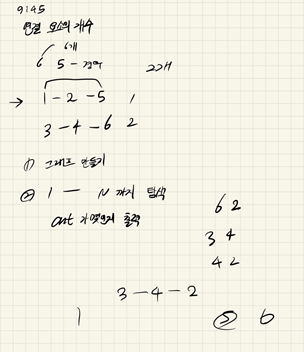 연결 요소의 개수
6개
6 5 - 정점
2개
→ 1 - 2 - 5 1
3 - 4 - 6 2
① 그래프 만들기
② 1 — N 까지 탐색
cnt 가 몇인지 출력
6 2
3 4
4 2
3 - 4 - 2
1 ⑤ 6